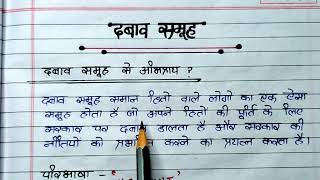 दबाव समूह
दबाव समूह से अभिप्राय ?
दबाव समूह समान हितों वाले लोगों का एक ऐसा
समूह होता है जो अपने हितों की पूर्ति के लिए
सरकार पर दबाव डालता है और सरकार की
नीतियों को करने का प्रयत्न करता है।
परिभाषा -